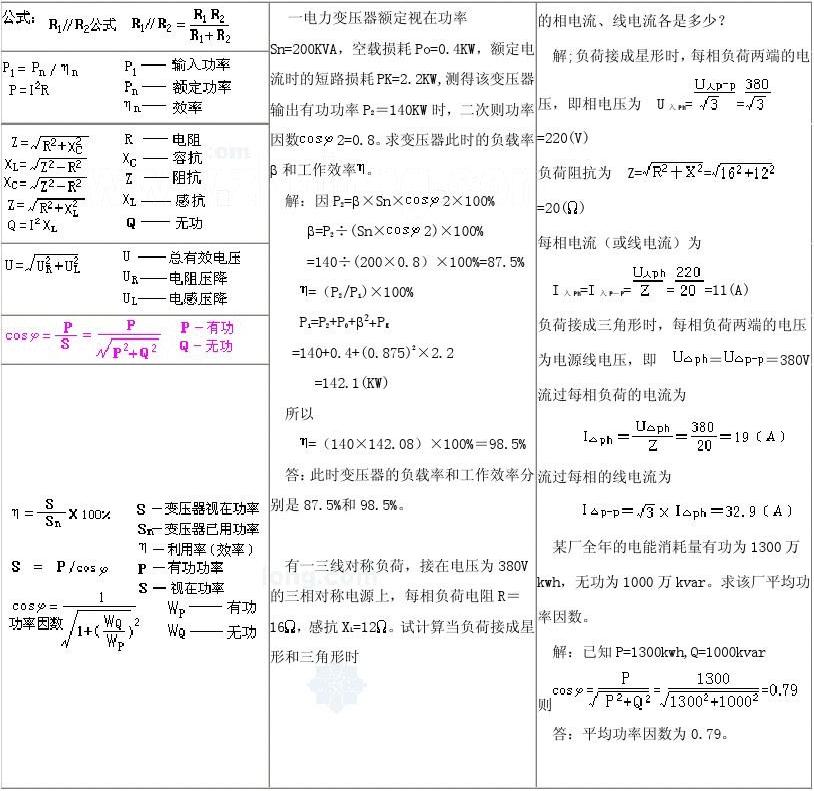 公式: R₁//R₂公式 R₁//R₂ = R₁ R₂ / R₁+R₂
P₁ = Pₙ / ηₙ P₁ — 输入功率
P=I²R Pₙ — 额定功率
ηₙ — 效率
Z=√R²+X_C² R — 电阻
X_L=√Z²−R² X_C — 容抗
X_C=√Z²−R² Z — 阻抗
Z=√R²+X_L² X_L — 感抗
Q=I²X_L Q — 无功
U=√U_R²+U_L² U — 总有效电压
U_R — 电阻压降
U_L — 电感压降
cosφ= P/S = P/√P²+Q² P－有功
Q－无功
η= S/Sn X 100% S－变压器视在功率
Sn－变压器已用功率
η－利用率(效率)
S = P/cosφ P－有功功率
S－视在功率
cosφ= 1/√1+(W_Q/W_P)² W_P — 有功
功率因数 W_Q — 无功
一电力变压器额定视在功率
Sn=200KVA，空载损耗Po=0.4KW，额定电
流时的短路损耗PK=2.2KW,测得该变压器
输出有功功率P₂＝140KW时，二次则功率
因数cosφ2=0.8。求变压器此时的负载率
β和工作效率η。
解：因P₂=β×Sn×cosφ2×100%
β=P₂÷(Sn×cosφ2)×100%
=140÷(200×0.8）×100%=87.5%
η=（P₂/P₁)×100%
P₁=P₂+P₀+β²+P_K
=140+0.4+(0.875)²×2.2
=142.1(KW)
所以
η=（140×142.08）×100%＝98.5%
答：此时变压器的负载率和工作效率分
别是87.5%和98.5%。
有一三线对称负荷，接在电压为380V
的三相对称电源上，每相负荷电阻R＝
16Ω，感抗X_L=12Ω。试计算当负荷接成星
形和三角形时
的相电流、线电流各是多少？
解;负荷接成星形时，每相负荷两端的电
压，即相电压为 U人Ph= U人P-P/√3 = 380/√3
=220(V)
负荷阻抗为 Z=√R²＋X²=√16²+12²
=20(Ω)
每相电流（或线电流）为
I人Ph=I人P-P= U人ph/Z = 220/20 =11(A)
负荷接成三角形时，每相负荷两端的电压
为电源线电压，即 U△ph＝U△p-p＝380V
流过每相负荷的电流为
I△ph＝ U△ph/Z ＝ 380/20 ＝19（A）
流过每相的线电流为
I△p-p＝√3×I△ph＝32.9（A）
某厂全年的电能消耗量有功为1300万
kwh，无功为1000万kvar。求该厂平均功
率因数。
解：已知P=1300kwh,Q=1000kvar
则cosφ= P/√P²+Q² = 1300/√1300²+1000² =0.79
答：平均功率因数为0.79。